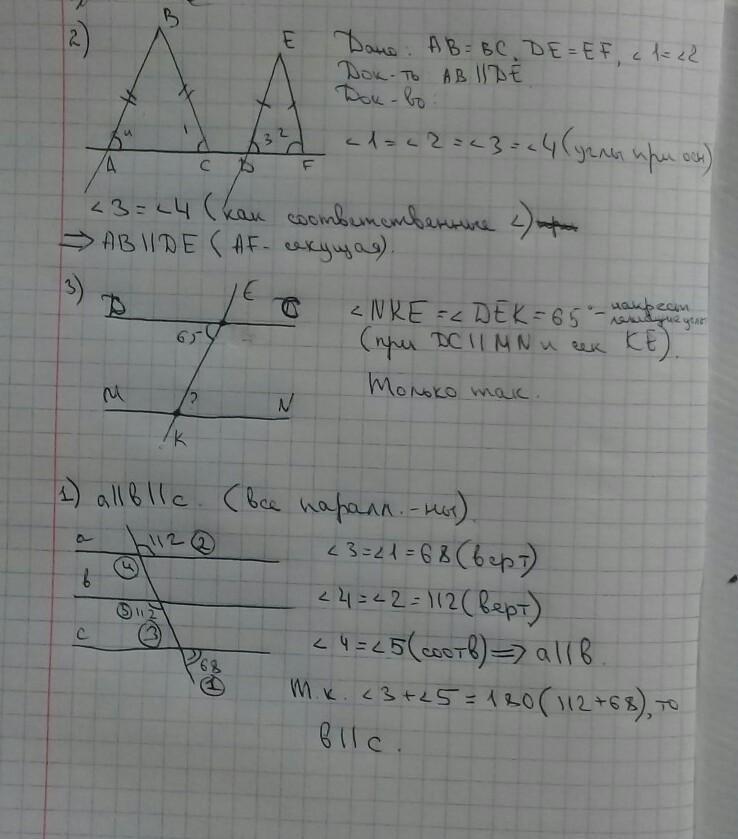 2)
B
E
Дано: AB=BC, DE=EF, ∠1=∠2
Док-ть AB||DE
Док-во:
4 1 3 2
A C D F
∠1=∠2=∠3=∠4 (углы при осн)
∠3=∠4 (как соответственные ∠)
⇒ AB||DE (AF-секущая).
3)
D E C
65
M ? N
K
∠NKE=∠DEK=65°-накрест
лежащие углы
(при DC||MN и сек KE).
Только так.
1) a||b||c. (все паралл.-ны)
a 112 2
4
b
5 112
c 3
68
1
∠3=∠1=68 (верт)
∠4=∠2=112 (верт)
∠4=∠5 (соотв) ⇒ a||b.
т.к. ∠3+∠5=180 (112+68), то
b||c.